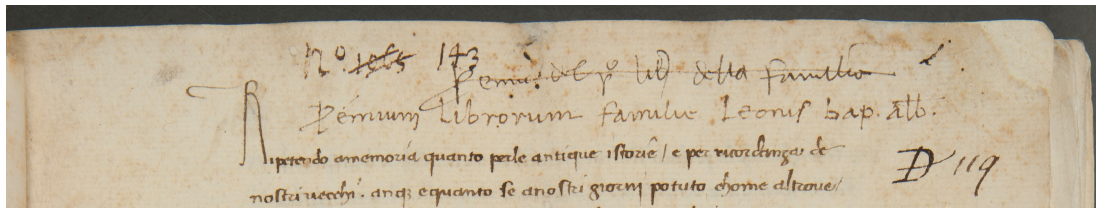 Nº. 1965 143
Pemiũ del pº libº della Familia
Pemium Librorum Familie Leonis bap. alb.
Ripetendo amemoria quanto perle antique istorie / e per ricordanza de
D 119
nostri vecchi. anq̃ equanto se anostri giorni potuto chome altrove /